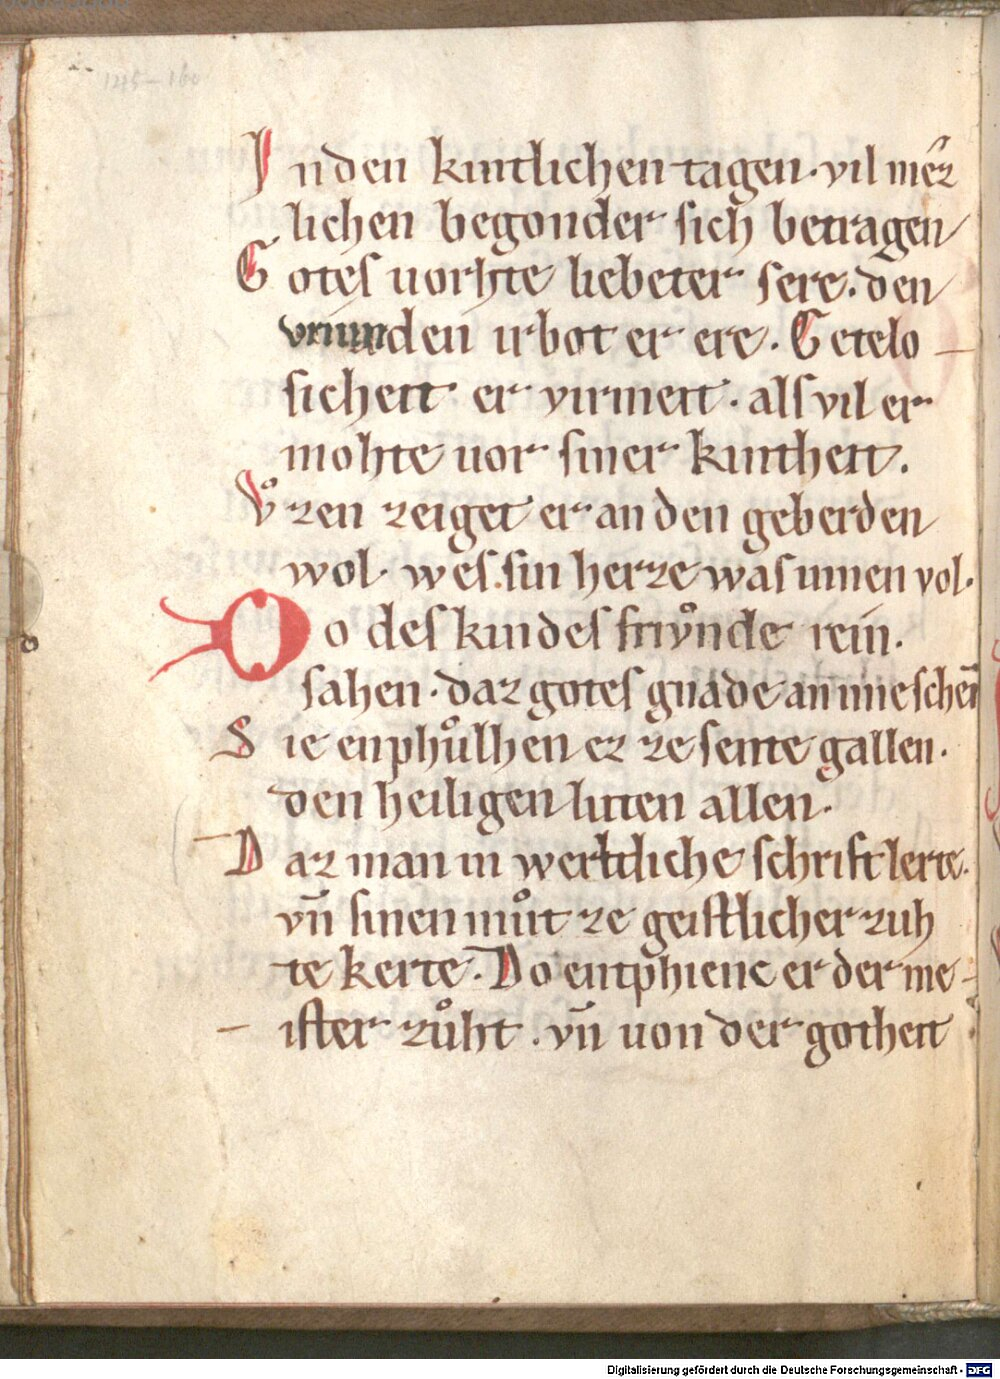 145-160
In den kintlichen tagen · vil mer
lichen begonder sich betragen
Gotes uorhte liebeter sere. den
vriunden irbot er ere. Getelo
sicheit er virmeit · als vil er
mohte uor siner kintheit.
Vͦzen zeiget er an den geberden
wol. wes sin herze was innen vol.
Do des kindes frivͦnde rein.
sahen · daz gotes gnade an imeschein̄
Sie enphuͦlhen ez ze sente gallen.
den heiligen luten allen.
Daz man in werltliche schrift lerte.
vn̄ sinen muͦt ze geistlicher zuh
te kerte. Do entphienc er der me
ister zuͦht . vn̄ uon der gotheit
Digitalisierung gefördert durch die Deutsche Forschungsgemeinschaft - DFG